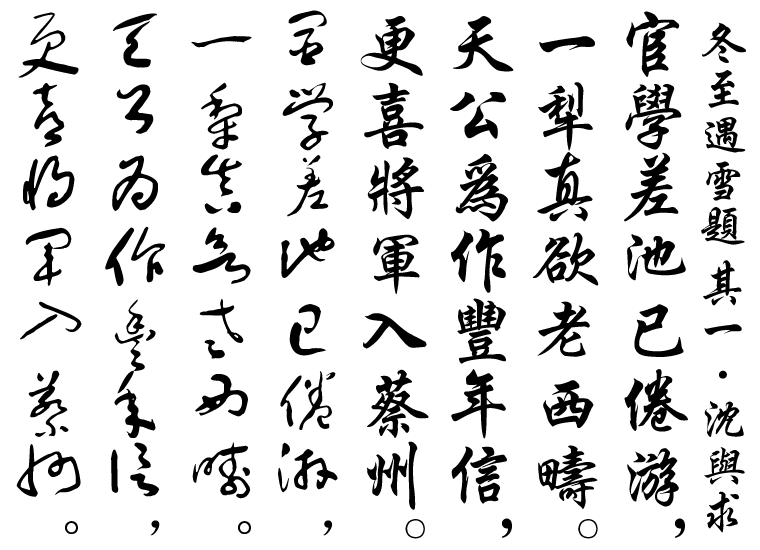 冬至遇雪題 其一·沈與求
宦學差池已倦游，
一犁真欲老西疇。
天公爲作豐年信，
更喜將軍入蔡州。
宦学差池已倦游，
一犁真欲老西疇。
天公为作豐年信，
更喜将军入蔡州。